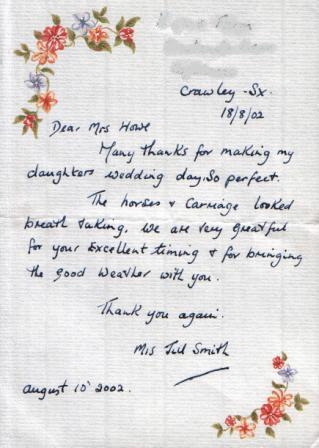 Crawley - Sx.
18/8/02
Dear Mrs Howe
Many thanks for making my
daughters wedding day, so perfect.
The horses & Carriage looked
breath taking, we are very greatful
for your Excellent timing & for bringing
the good weather with you.
Thank you again.
Mrs Jill Smith
August 10' 2002.